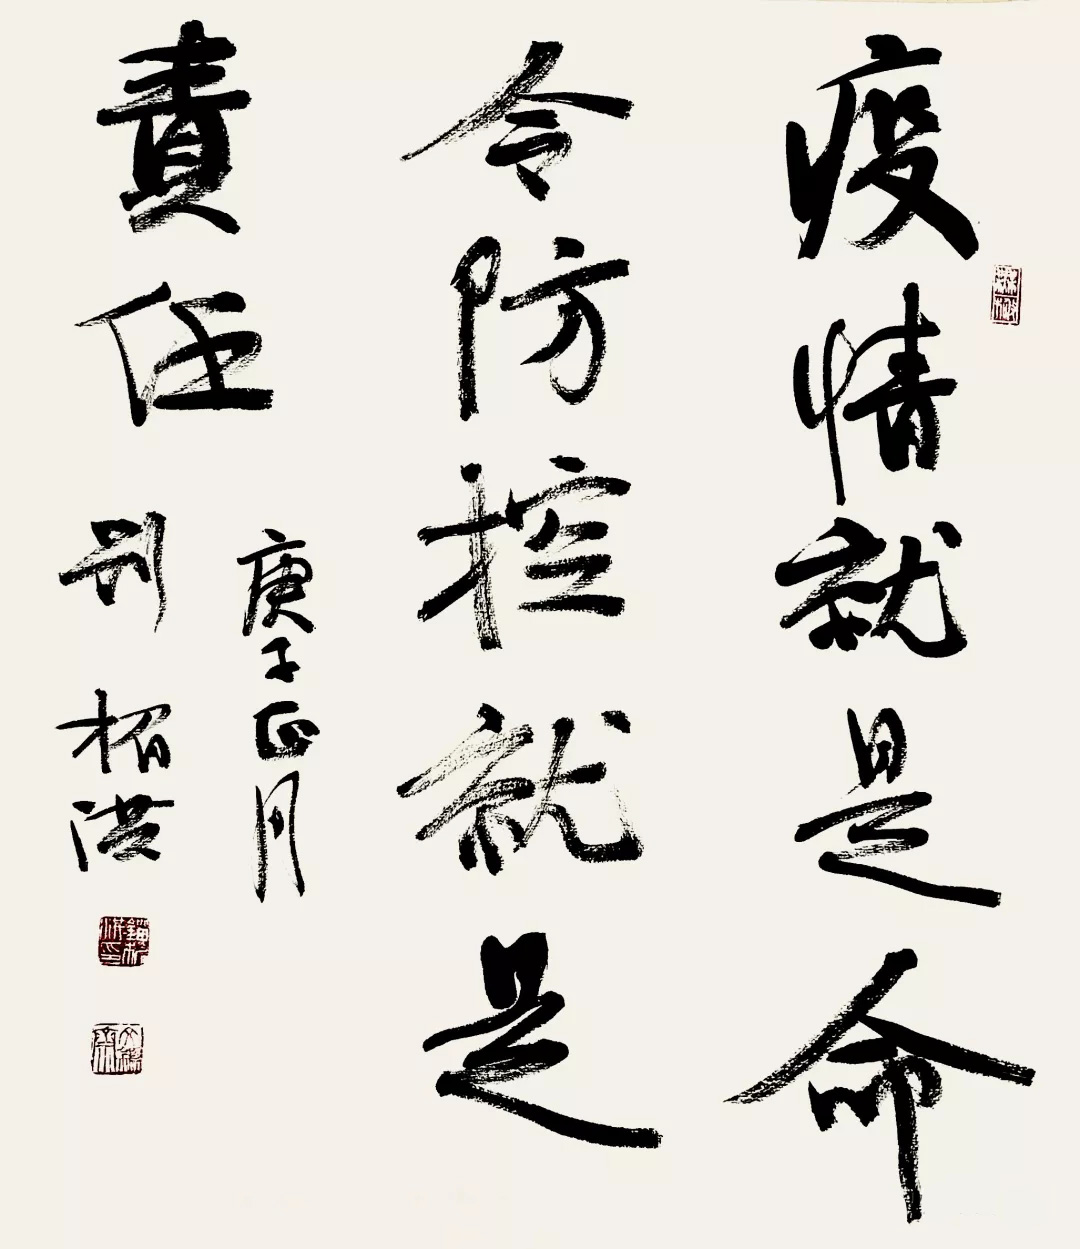 疫情就是命
令防控就是
責任
庚子正月
刘 洪